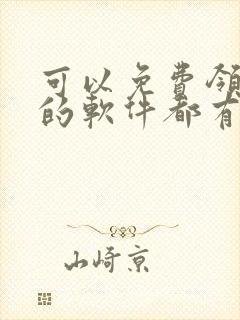 可以免費領
的軟件都有
山崎京